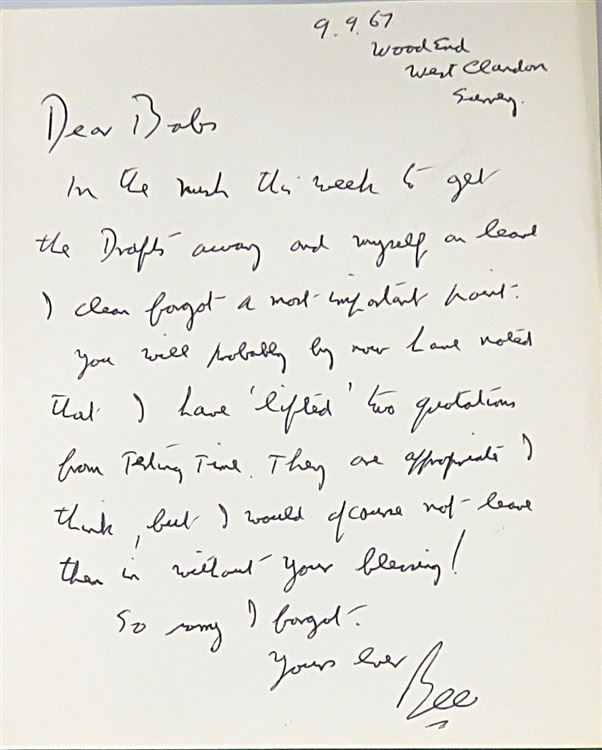 9.9.67
Wood End
West Clandon
Surrey.
Dear Babs
In the rush this week to get
the Drafts away and myself on leave
I clean forgot a most important point.
You will probably by now have noted
that I have 'lifted' two quotations
from Testing Time. They are appropriate I
think, but I would of course not leave
them in without your blessing!
So sorry I forgot.
Yours ever
Bee